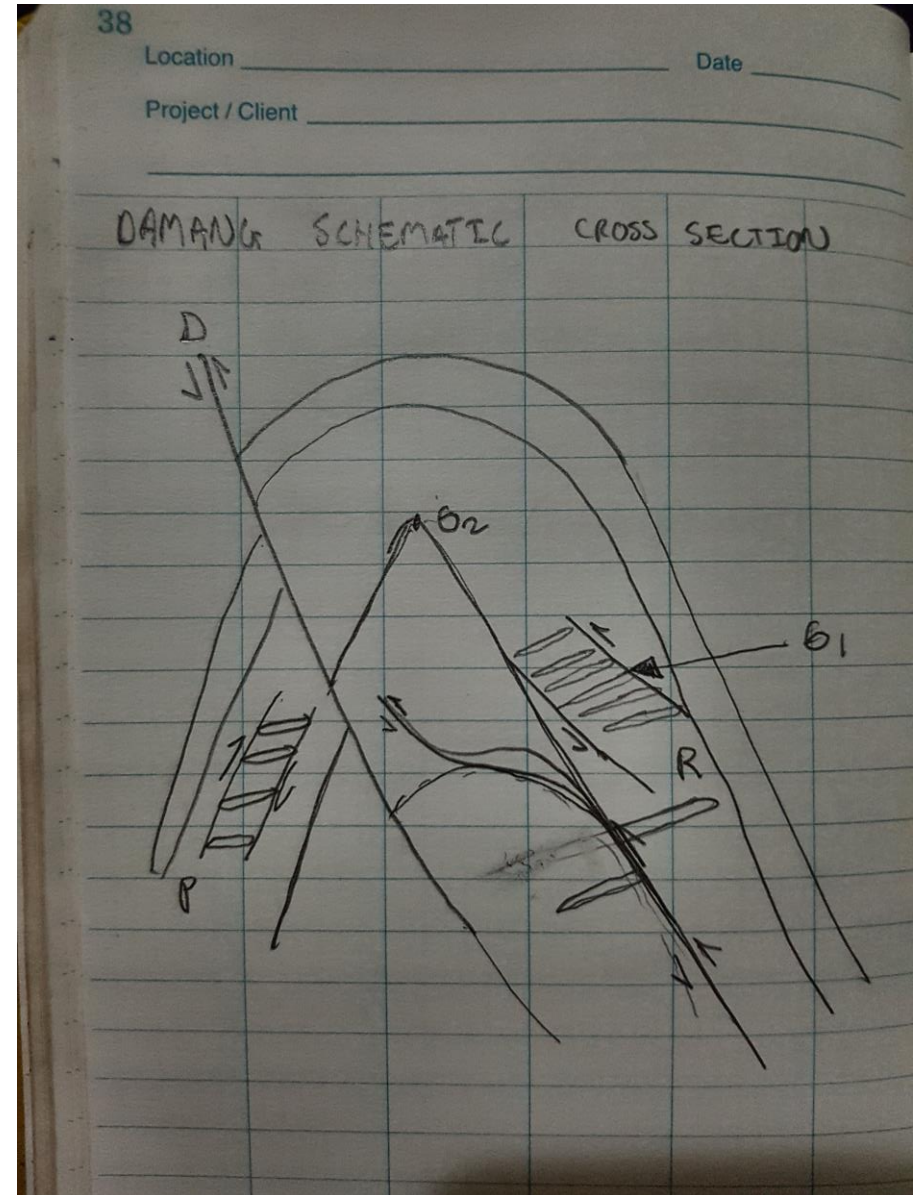 38
Location
Date
Project / Client
DAMANG SCHEMATIC CROSS SECTION
D
σ2
σ1
R
P